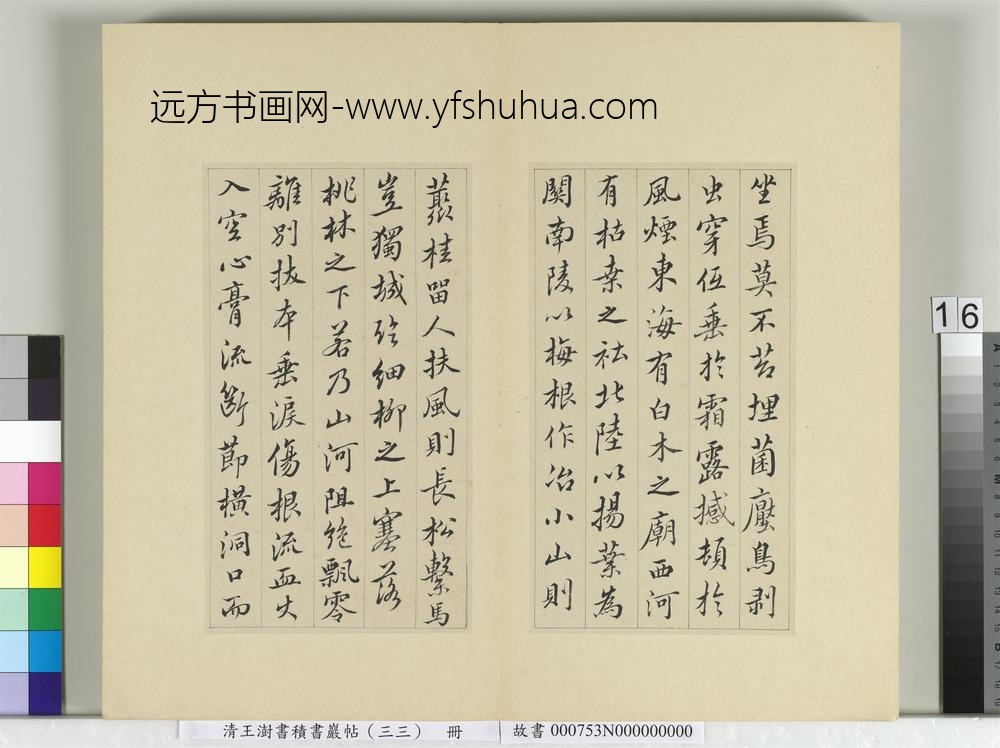 远方书画网-www.yfshuhua.com
坐焉莫不苔埋菌壓鳥剥
虫穿伍垂於霜露撼頓於
風煙東海有白木之廟西河
有枯桒之社北陸以揚葉為
關南陵以梅根作冶小山則
叢桂留人扶風則長松繫馬
豈獨城臨細柳之上塞落
桃林之下若乃山河阻絶飄零
離別拔本垂淚傷根流血火
入空心膏流斷節橫洞口而
16
清王澍書積書巖帖（三三） 冊
故書 000753N000000000